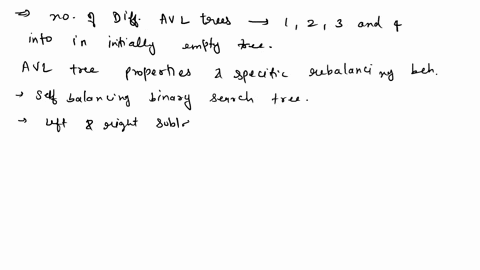 ⇒ no. of Diff. AVL trees → 1, 2, 3 and 4
into in initially empty tree.
AVL tree properties & specific rebalancing beh.
→ Self balancing binary search tree.
→ left & right subtr